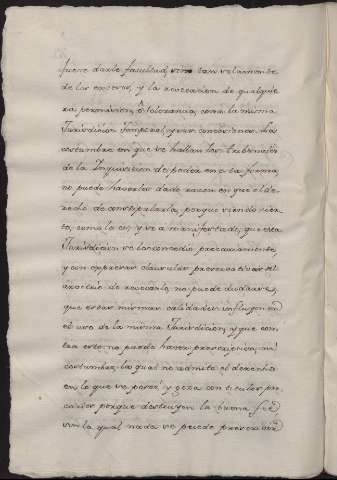 fuere darle facultad, sino tan solamente
de las expresas, y la revocacion de qualquie
ra permision, ó tolerancia, como la misma
Jurisdicion Temporal
costumbre en que se hallan los Tribunales
de la Inquisicion de poder en esta forma
no puede haverles dado razon en que el de
recho de constipularla, porque siendo cier
to, como lo es, y se a manifestado, que esta
Jurisdicion se les concedio precariamente,
y con expresas clausulas preservativas del
de revocarlo, no puede dudarse,
que estas mismas calidades influyen en
el uso de la misma Jurisdicion, y que con
tra esto no puede haver prescripcion, ni
costumbre, la qual no admite el derecho
en lo que se posee, y goza con titulos pre
carios porque destruyen la buena feé
sin la qual nada se puede prescribir